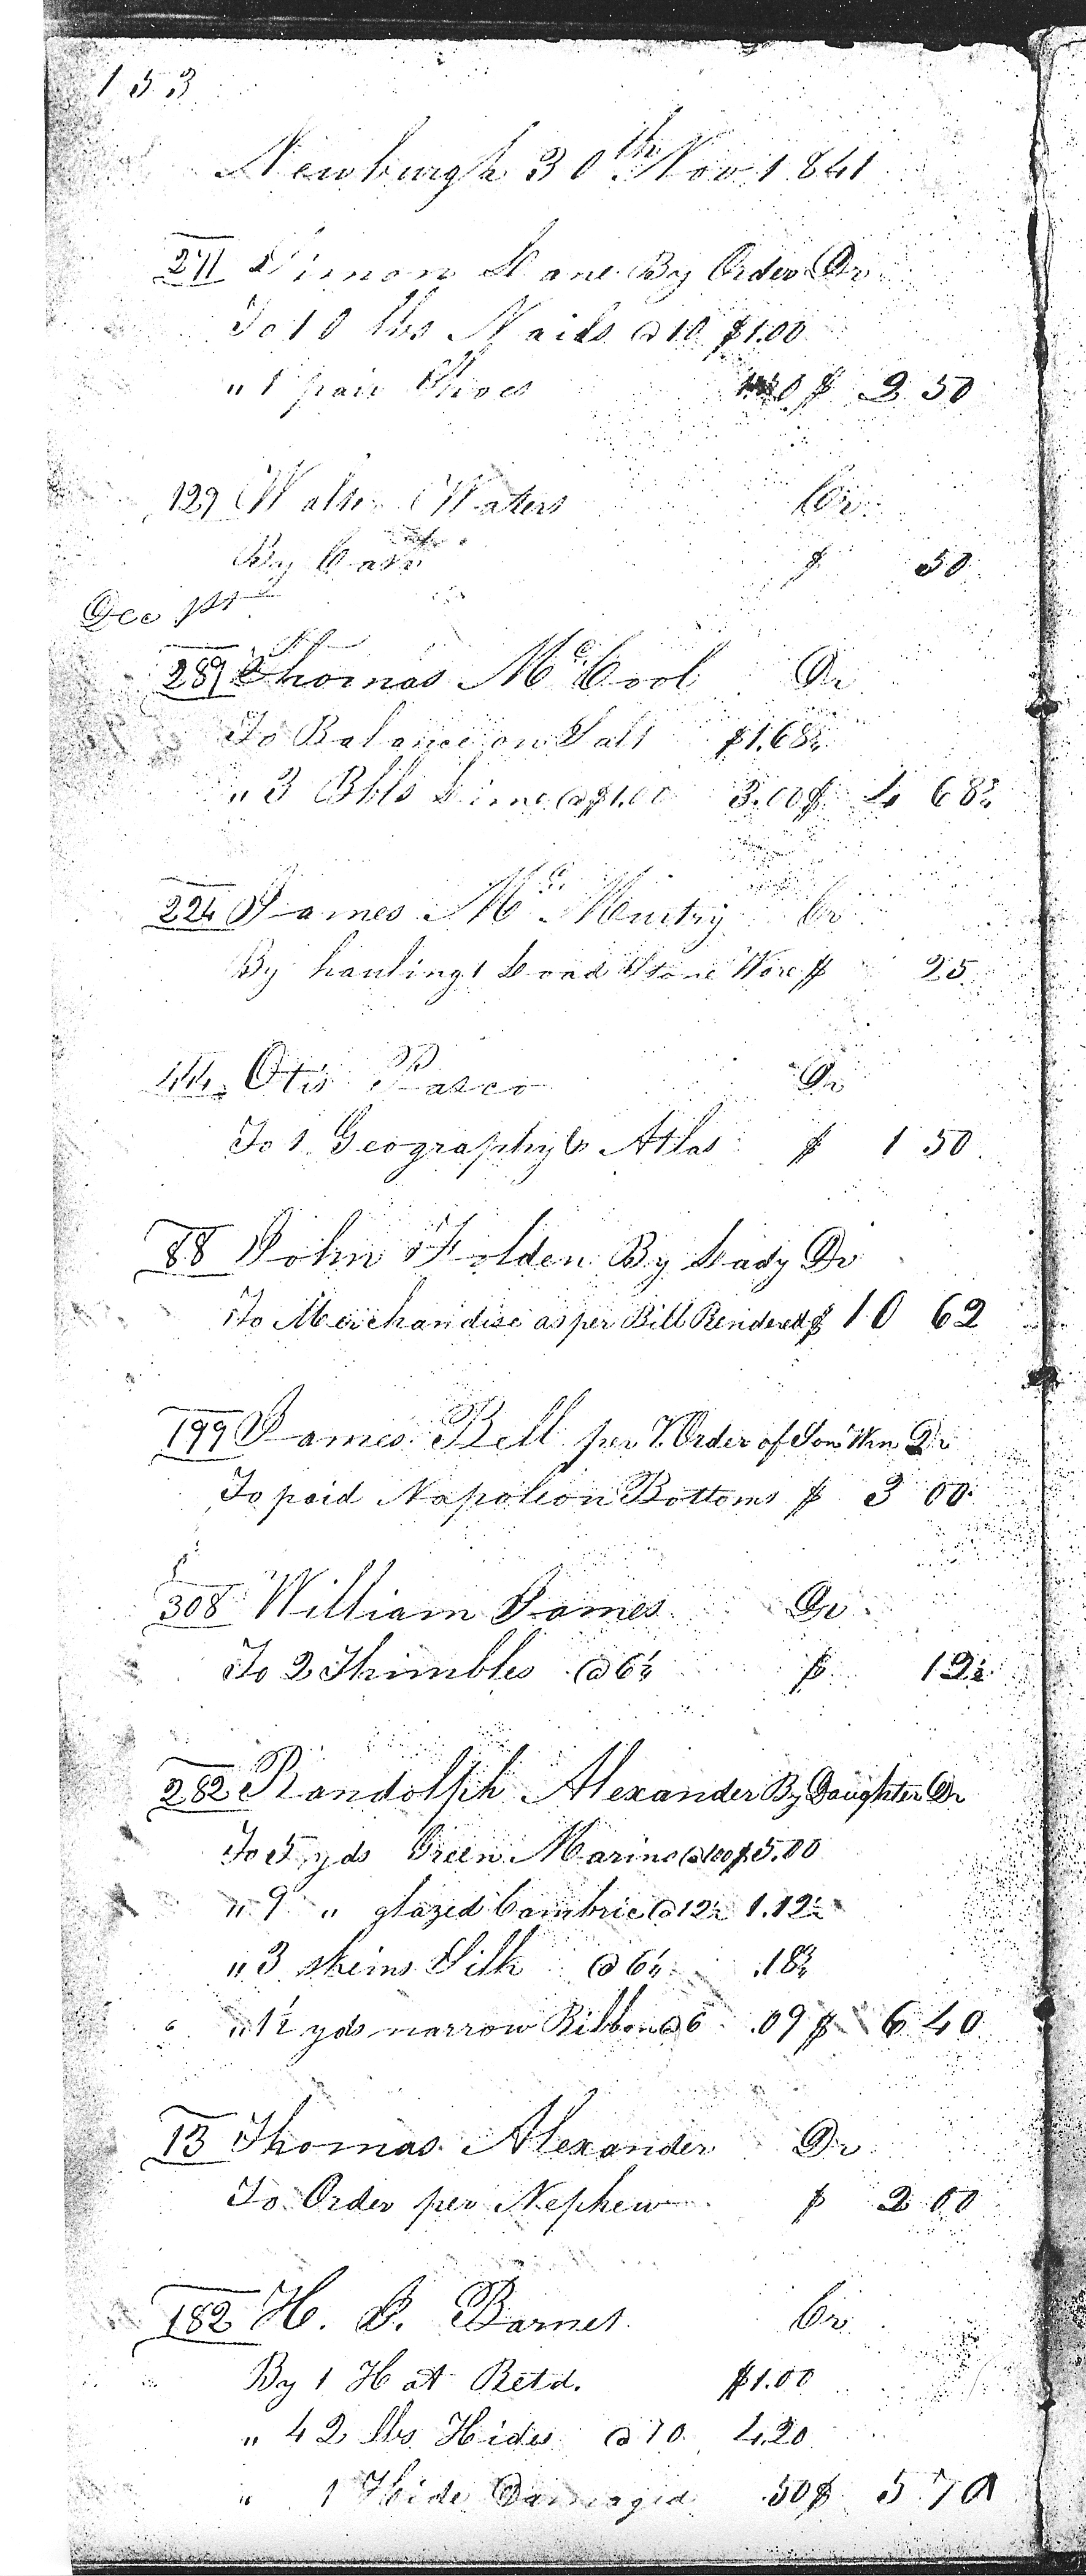 153
Newburgh 30th Nov 1841
271 Simon Lane By Order Dr
To 10 lbs Nails @ 10 $1.00
" 1 pair Shoes 1.50 $ 2 50
129 Walter Waters Cr
By Cash $ 50
Dec 1st
289 Thomas McCool Dr
To Balance on Salt $1.68¾
" 3 Bbls Lime @ $1.00 3.00 $ 4 68¾
224 James McMurtry Cr
By hauling 1 Load Stone Ware $ 25
44 Otis Pasco Dr
To 1 Geography & Atlas $ 1 50
88 John Folden By Lady Dr
To Merchandise as per Bill Rendered $ 10 62
199 James Bell per V. Order of Son Wm Dr
To paid Napoleon Bottoms $ 3 00
308 William James Dr
To 2 Thimbles @ 6¼ $ 12½
282 Randolph Alexander By Daughter Dr
To 5 yds Green Marino @ 100 $5.00
" 9 " glazed Cambric @ 12½ 1.12½
" 3 skeins Silk @ 6¼ .18¾
" 1½ yds narrow Ribbon @ 6 .09 $ 6 40
13 Thomas Alexander Dr
To Order per Nephew $ 2 00
182 H. J. Barnes Cr
By 1 Hat Retd. $1.00
" 42 lbs Hides @ 10 4.20
" 1 Hide Damaged .50 $ 5 70